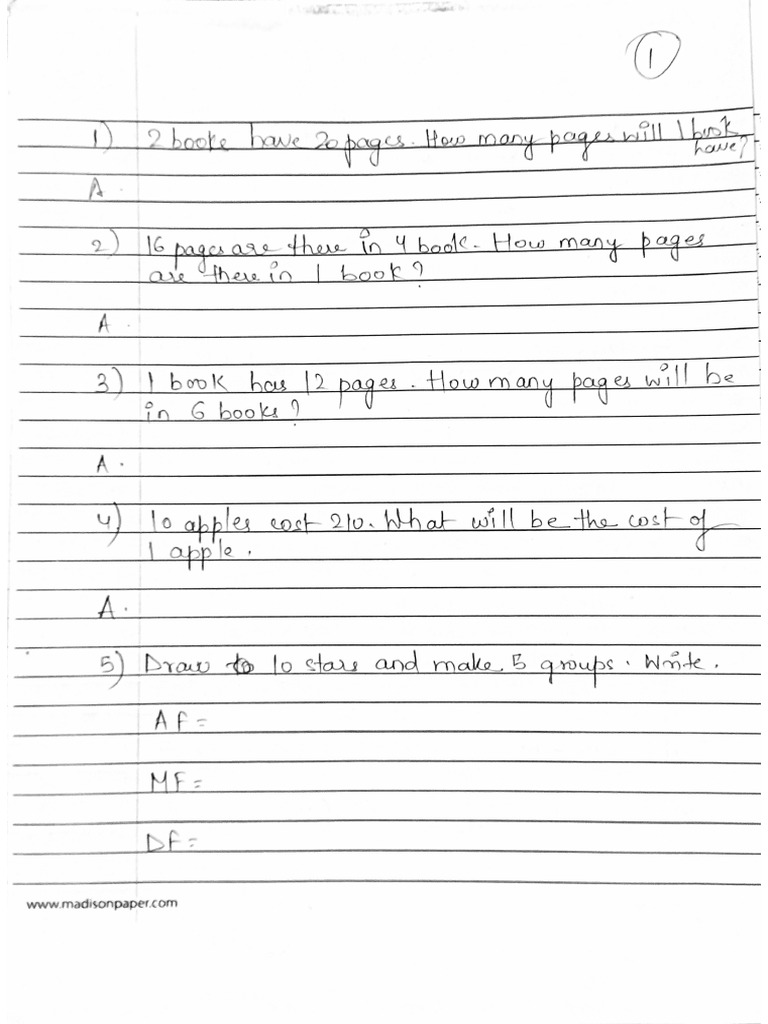 1
1) 2 booke have 20 pages. How many pages will 1 book
have?
A.
2) 16 pages are there in 4 book. How many pages
are there in 1 book?
A.
3) 1 book has 12 pages. How many pages will be
in 6 books?
A.
4) 10 apples cost 210. What will be the cost of
1 apple.
A.
5) Draw 10 stars and make 5 groups. Write.
AF=
MF=
DF=
www.madisonpaper.com